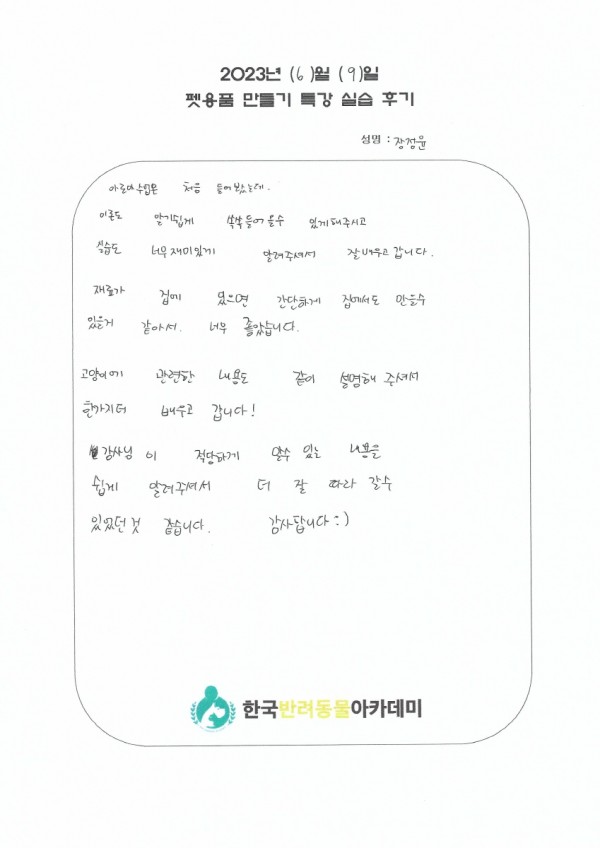 2023년 (6)월 (9)일
펫용품 만들기 특강 실습 후기
성명 : 장정윤
아로마수업은 처음 들어봤는데.
이론도 알기쉽게 쏙쏙들어올수 있게해주시고
실습도 너무재미있게 알려주셔서 잘배우고갑니다.
재료가 집에 있으면 간단하게 집에서도 만들수
있을거 같아서. 너무 좋았습니다.
고양이에 관련한 내용도 같이 설명해 주셔서
한가지더 배우고 갑니다!
강사님이 적당하게 알수 있는 내용을
쉽게 알려주셔서 더 잘 따라 갈수
있었던것 같습니다. 감사합니다 :)
한국반려동물아카데미